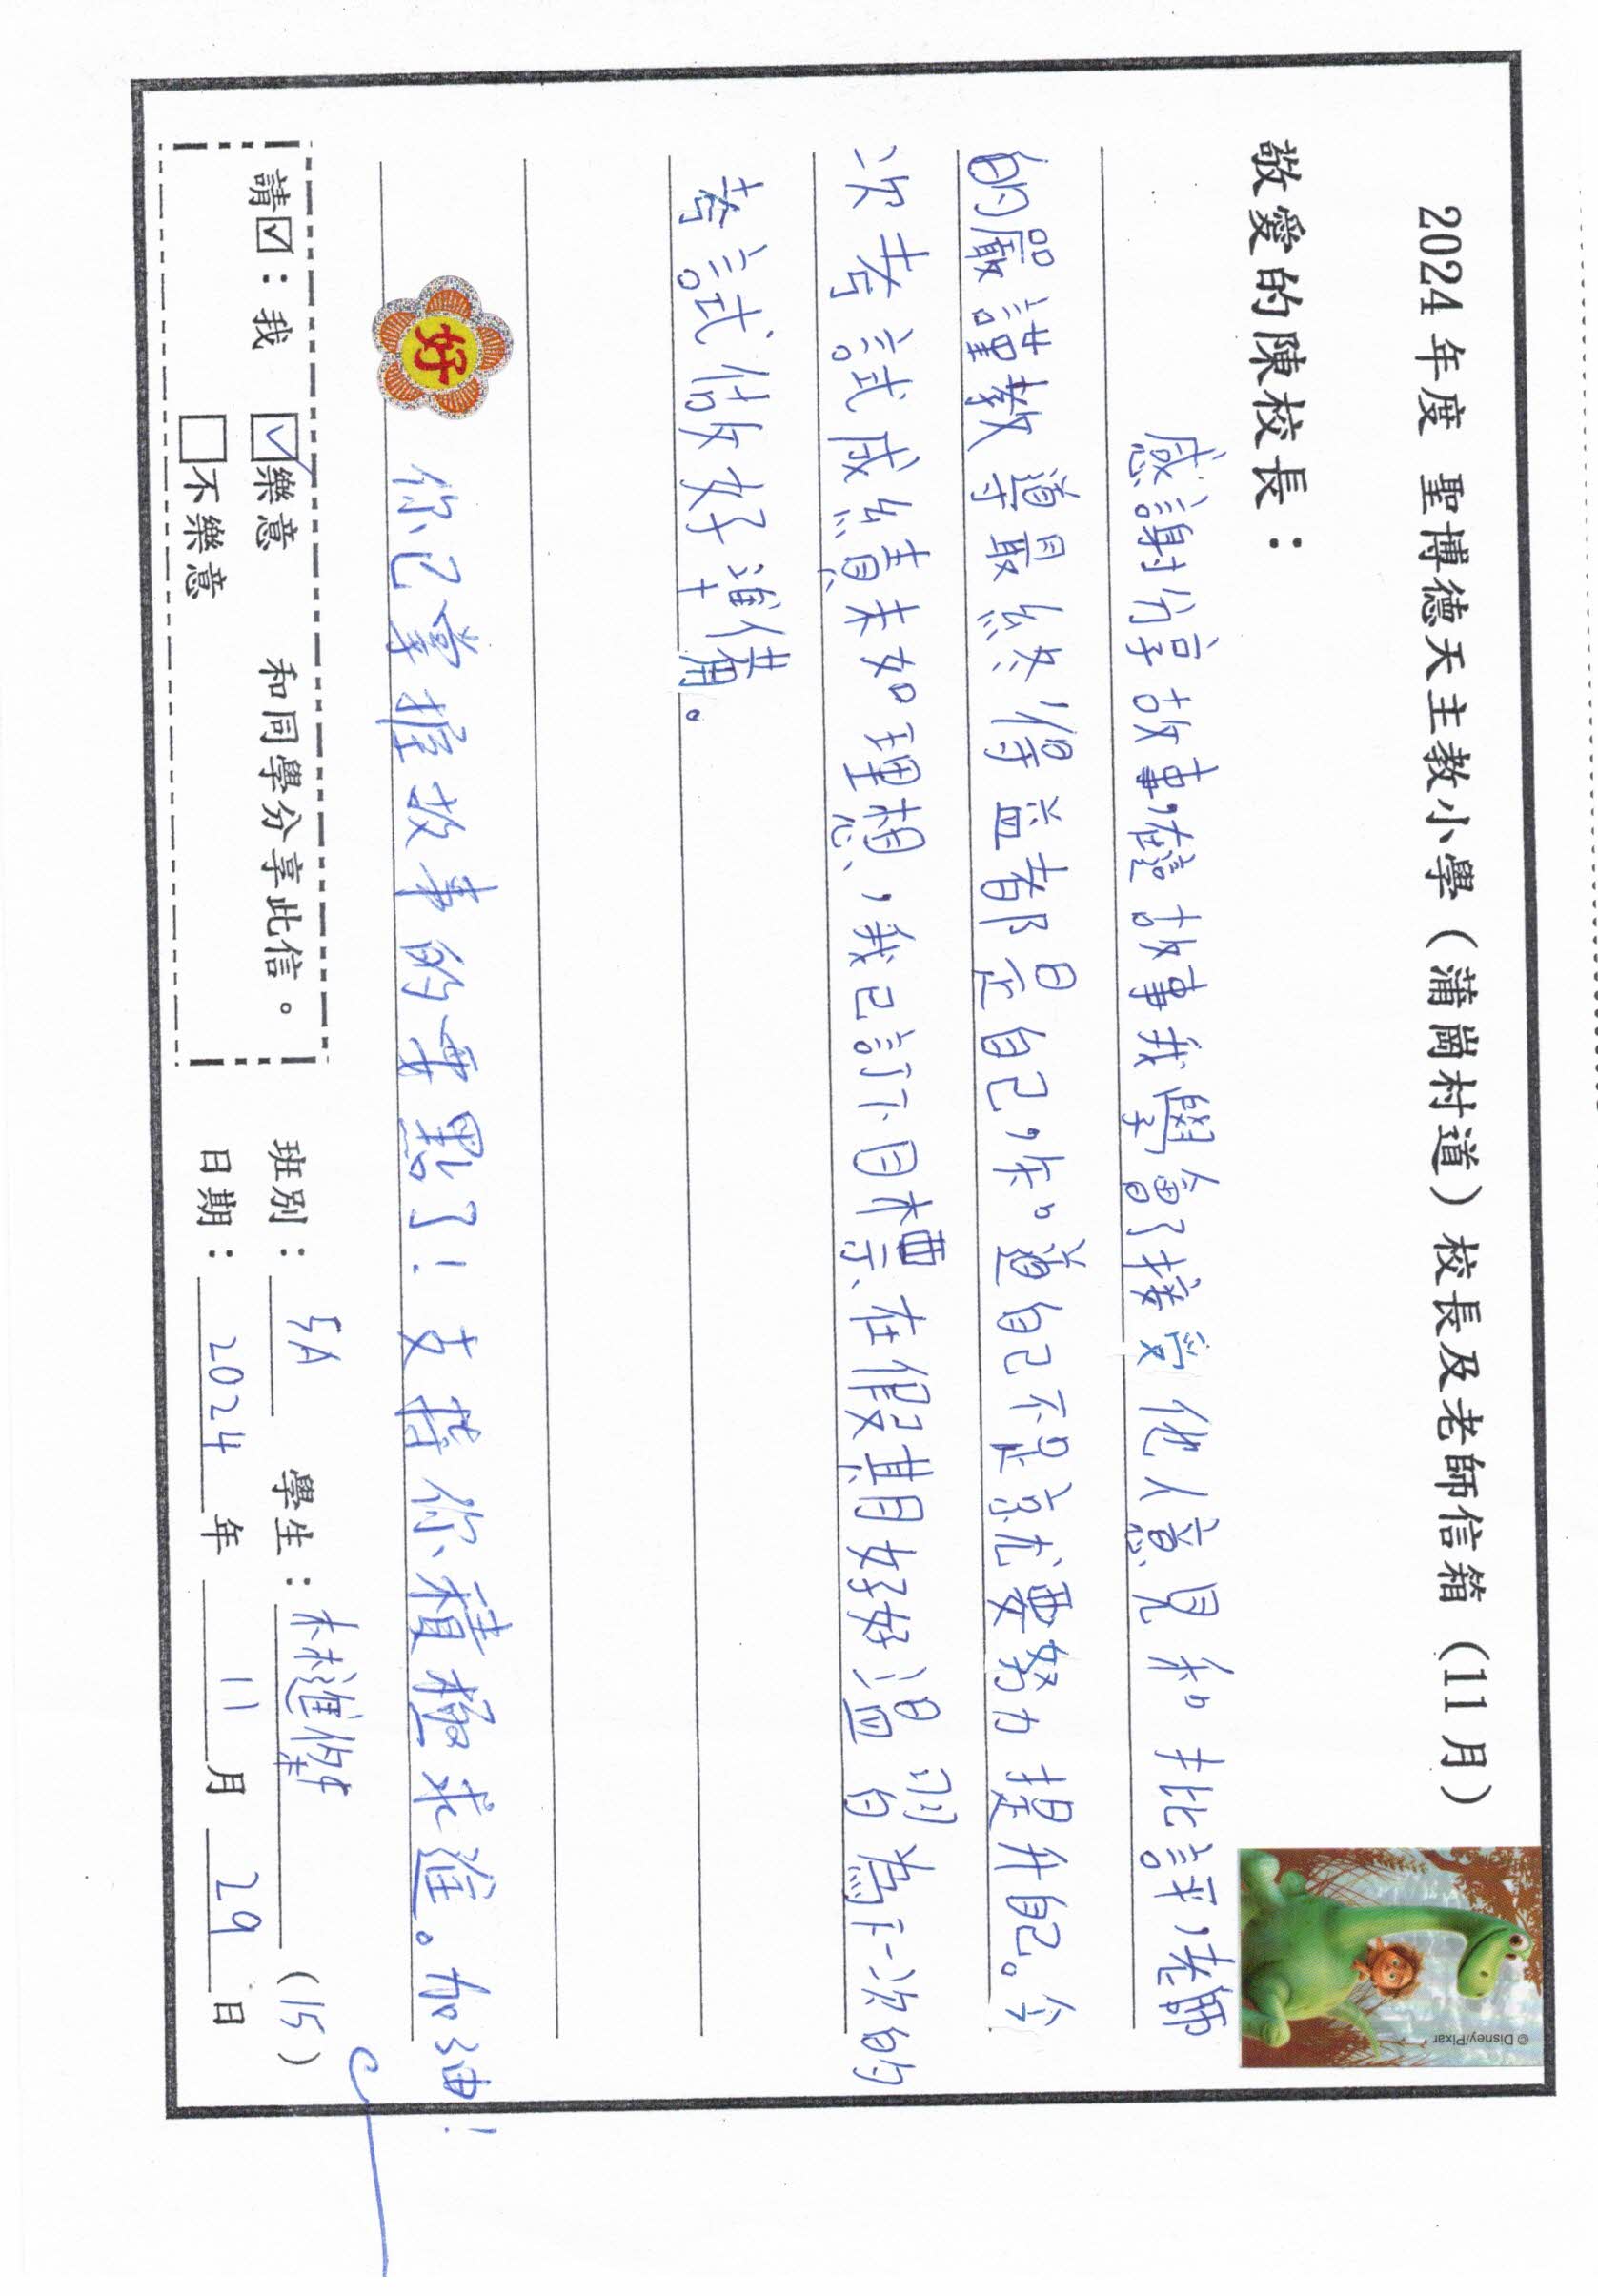 2024年度 聖博德天主教小學（蒲崗村道）校長及老師信箱（11月）
敬愛的陳校長：
感謝分享故事,在這故事我學會了接受他人意見和批評,老師
的嚴謹教導最終得益者都是自己,知道自己不足就要努力提升自己。今
次考試成績未如理想，我已訂下目標在假期好好溫習為下一次的
考試做好準備。
好
你已掌握故事的要點了！支持你積極求進。加油！
請☑：我 ☑樂意 和同學分享此信。
□不樂意
班別：5A 學生：林進 (15)
日期：2024年11月29日
© Disney/Pixar